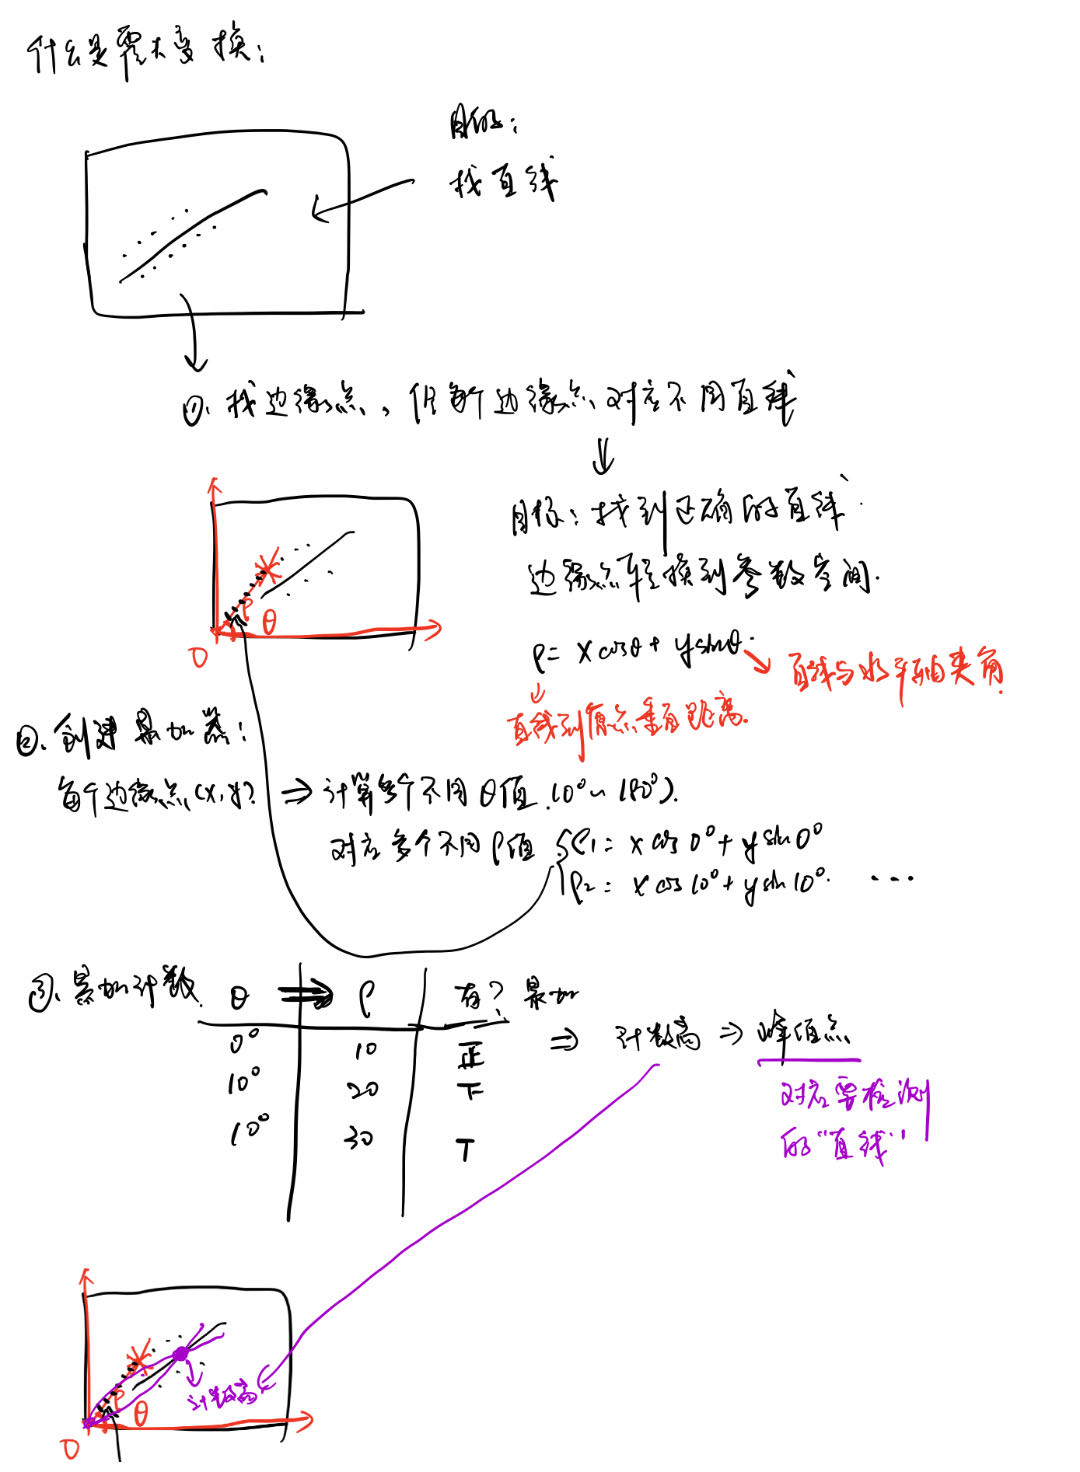 什么是霍夫变换:
目的:
找直线
①. 找边缘点, 但每个边缘点对应不同直线
目标: 找到正确的直线.
边缘点转换到参数空间.
ρ= xcosθ+ ysinθ.
直线与水平轴夹角
直线到原点垂直距离.
ρ
θ
O
②. 创建累加器:
每个边缘点(x,y) ⇒ 计算多个不同θ值 (0°~180°).
对应多个不同ρ值 { ρ1= xcos0°+ysin0°
ρ2= xcos10°+ysin10°. ...
③. 累加计数.
θ ⇒ ρ 有? 累加
0° 10 正
10° 20 下
10° 30 T
⇒ 计数高 ⇒ 峰值点
对应要检测
的"直线"
计数高
ρ
θ
O